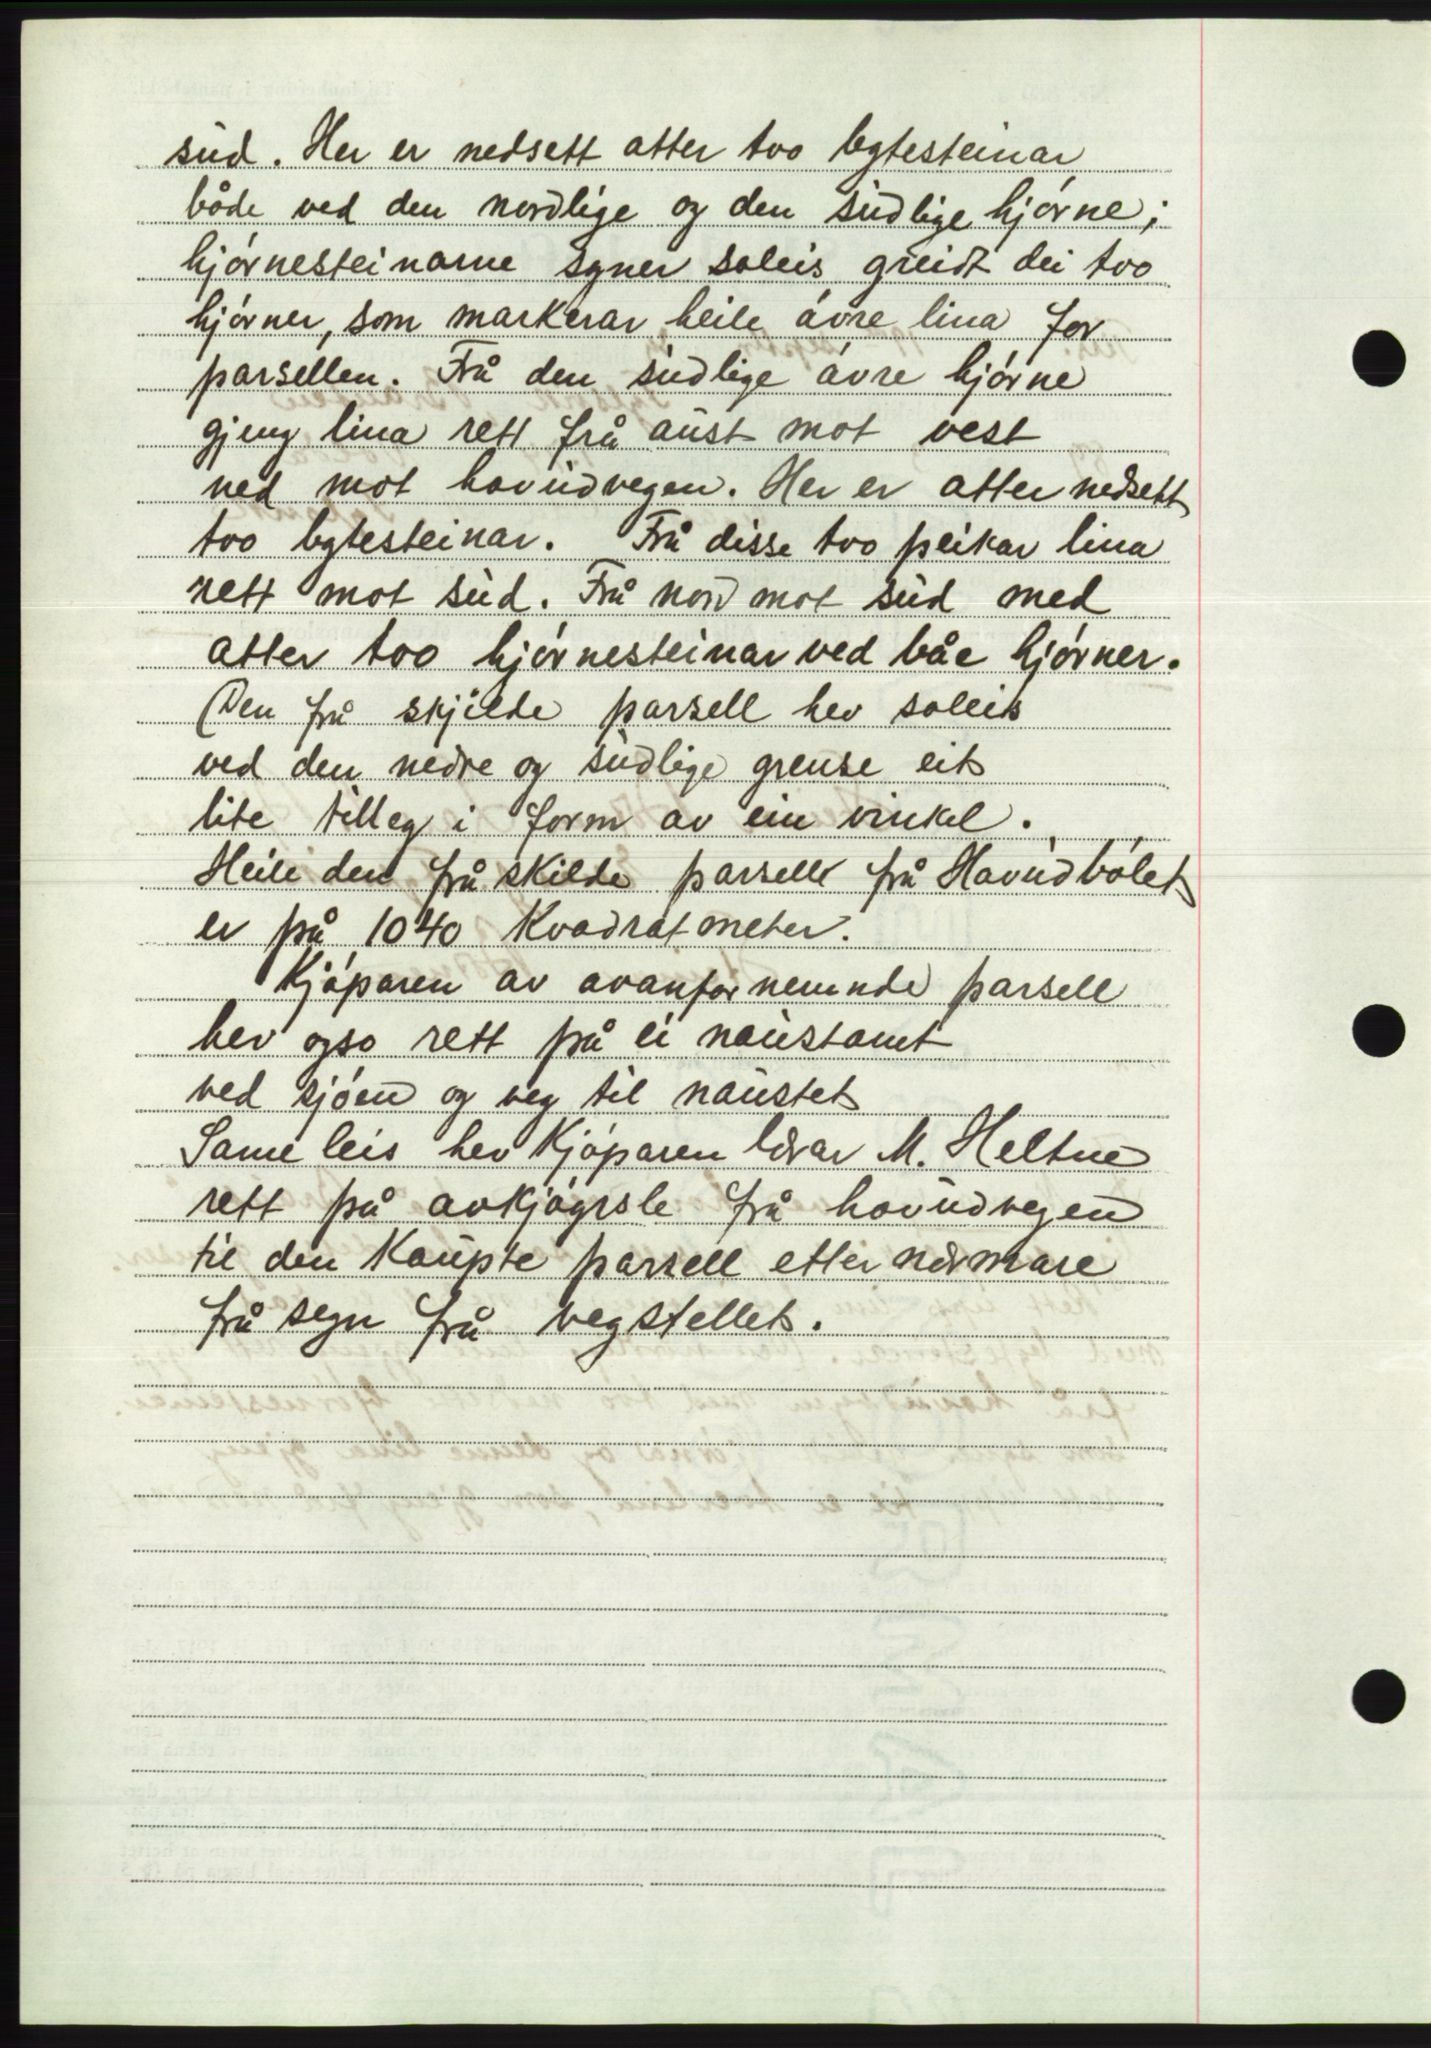 süd. Her er nedsett atter tvo bytesteinar
både ved den nordlige og den südlige hjórne;
hjórnesteinarne syner soleis greidt dei tvo
hjórner, som markerar heile óvre lina for
parsellen. Frå den südlige óvre hjórne
gjeng lina rett frå aüst mot vest
ned mot hovüdvegen. Her er atter nedsett
tvo bytesteinar. Frå disse tvo peikar lina
rett mot süd. Frå nord mot süd med
atter tvo hjórnesteinar ved båe hjórner.
Den frå skjilde parsell hev soleis
ved den nedre og südlige grense eit
lite tilleg i form av ein vinkel.
Heile den frå skilde parsell frå Hovüdbólet
er på 1040 Kvadratmeter.
Kjóparen av ovanfor nemnde parsell
hev ogso rett på ei naüstomt
ved sjóen og veg til naüstet
Same leis hev Kjóparen Ivar M. Heltne
rett på avkjóyrsle frå hovüdvegen
til den Kaüpte parsell etter nærmare
frå segn frå vegstellet.